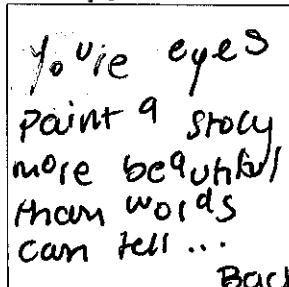 you're eyes
paint a story
more beautiful
than words
can tell ...
Back